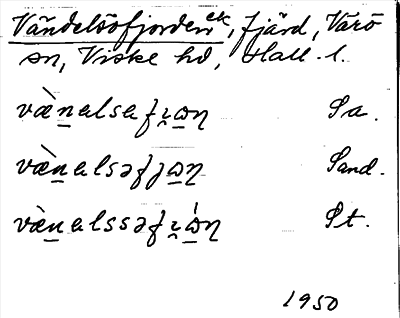 Vändelsöfjorden ek, fjärd, Värö
sn, Viske hd, Hall. l.
væ̀nalsafi̯ɷn Sa.
væ̀nalsəfjɷn Sand.
væ̀nalssəfi̯ɷ́n St.
1950